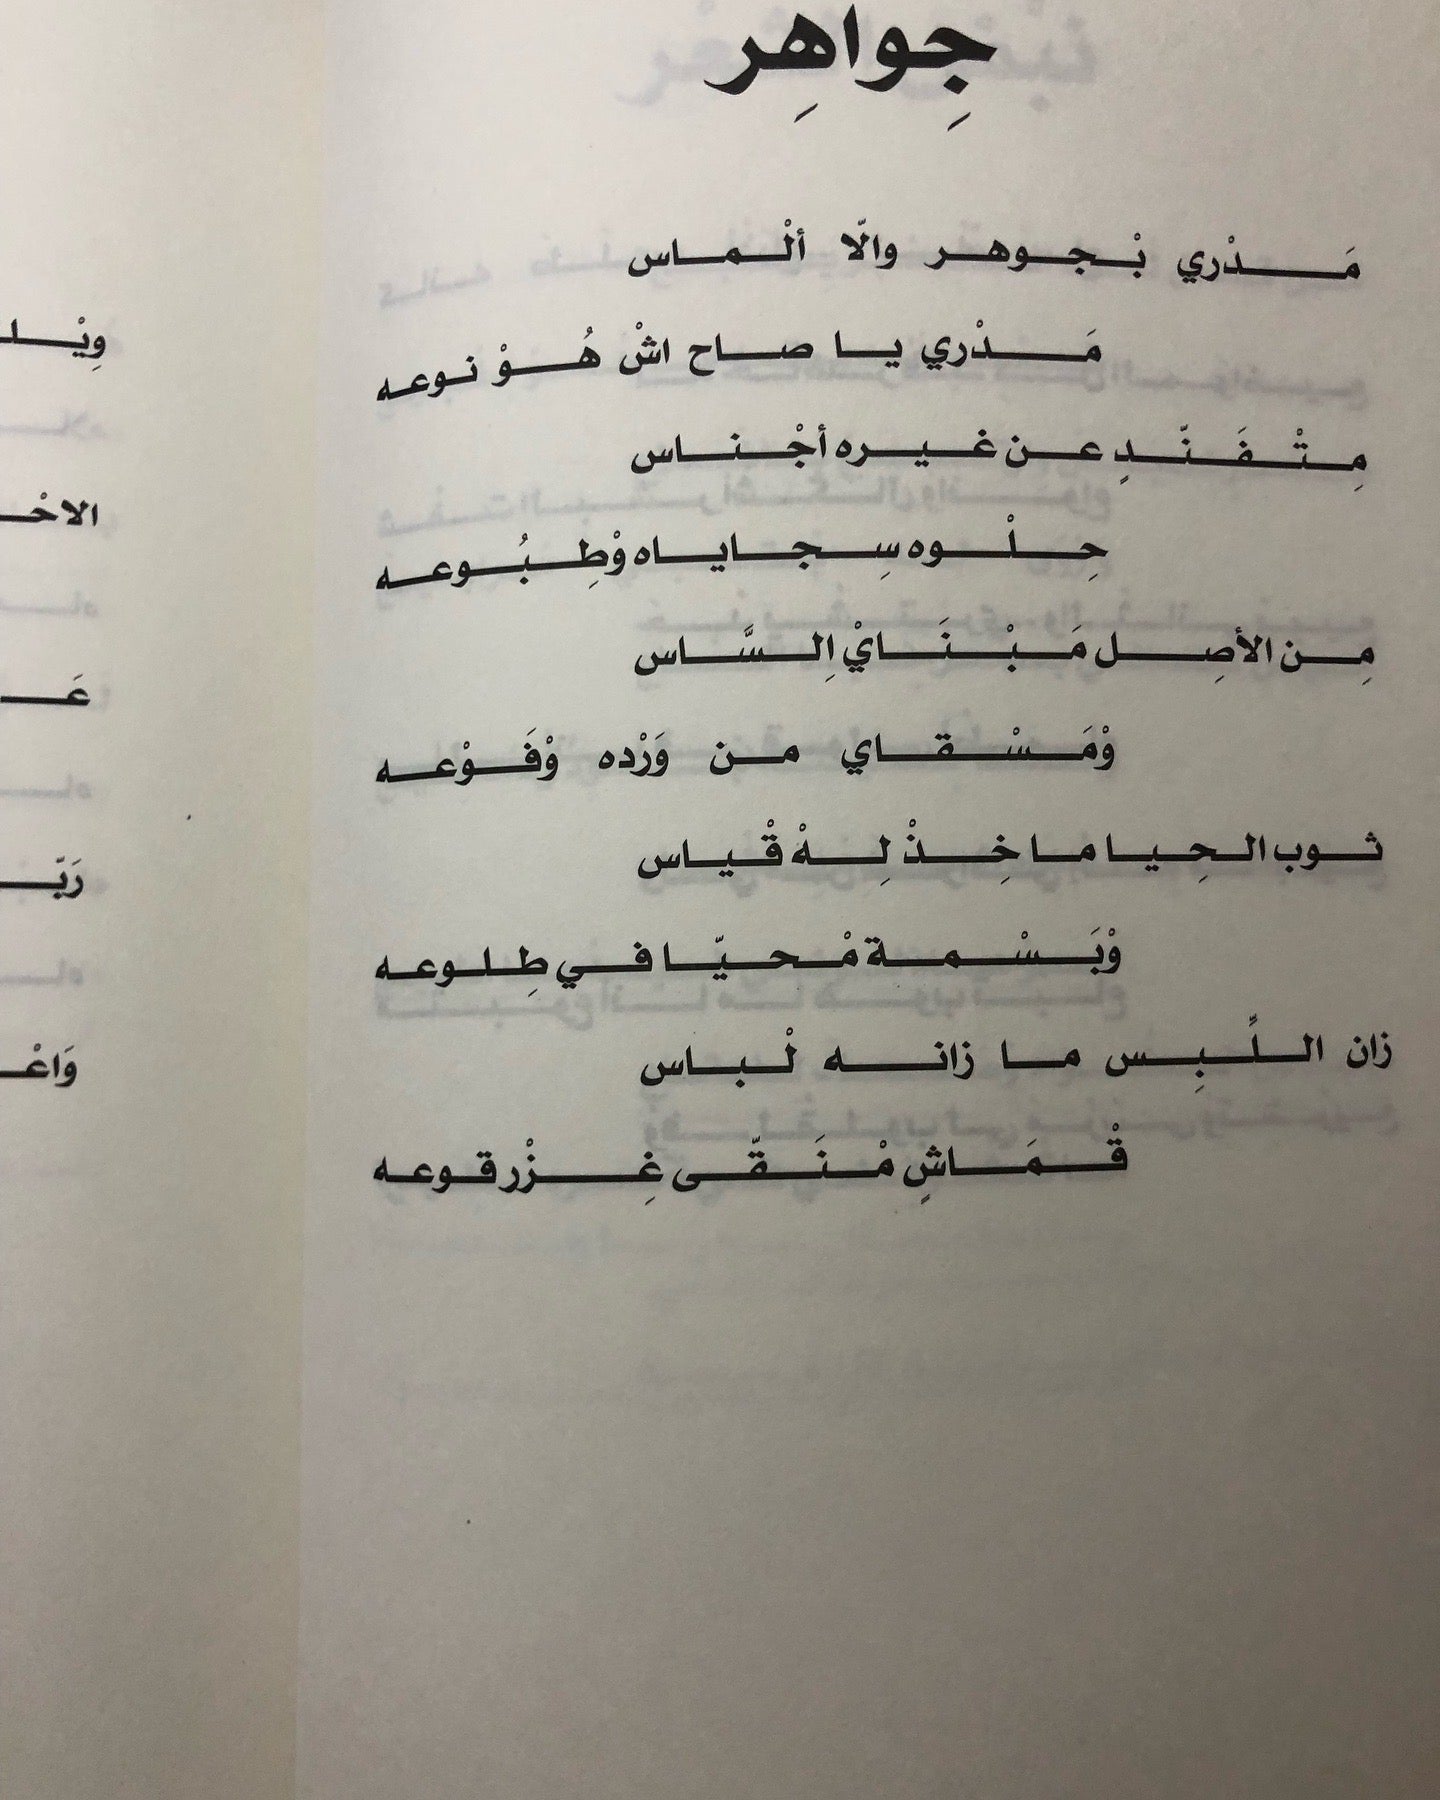 جِواهِر
مَدْري بْجوهر والّا ألْماس
مَدْري يا صاح اشْ هُوْ نوعه
مِتْفَنّدٍ عن غيره أجْناس
حِلْوه سِجاياه وْطِبُوعه
مِن الأصِل مَبْنَايْ اِلسَّاس
وْمَسْقاي من وَرْده وْفَوْعه
ثوب الحِيا ما خِذْ لِهْ قْياس
وْبَسْمة مْحيّا في طِلوعه
زان اللِّبِس ما زانه لْباس
قْمَاشٍ مْنَقّى غِزْر قوعه
وِيْلـ
الاحْـ
عَـ
رَبّـ
وَاعْـ